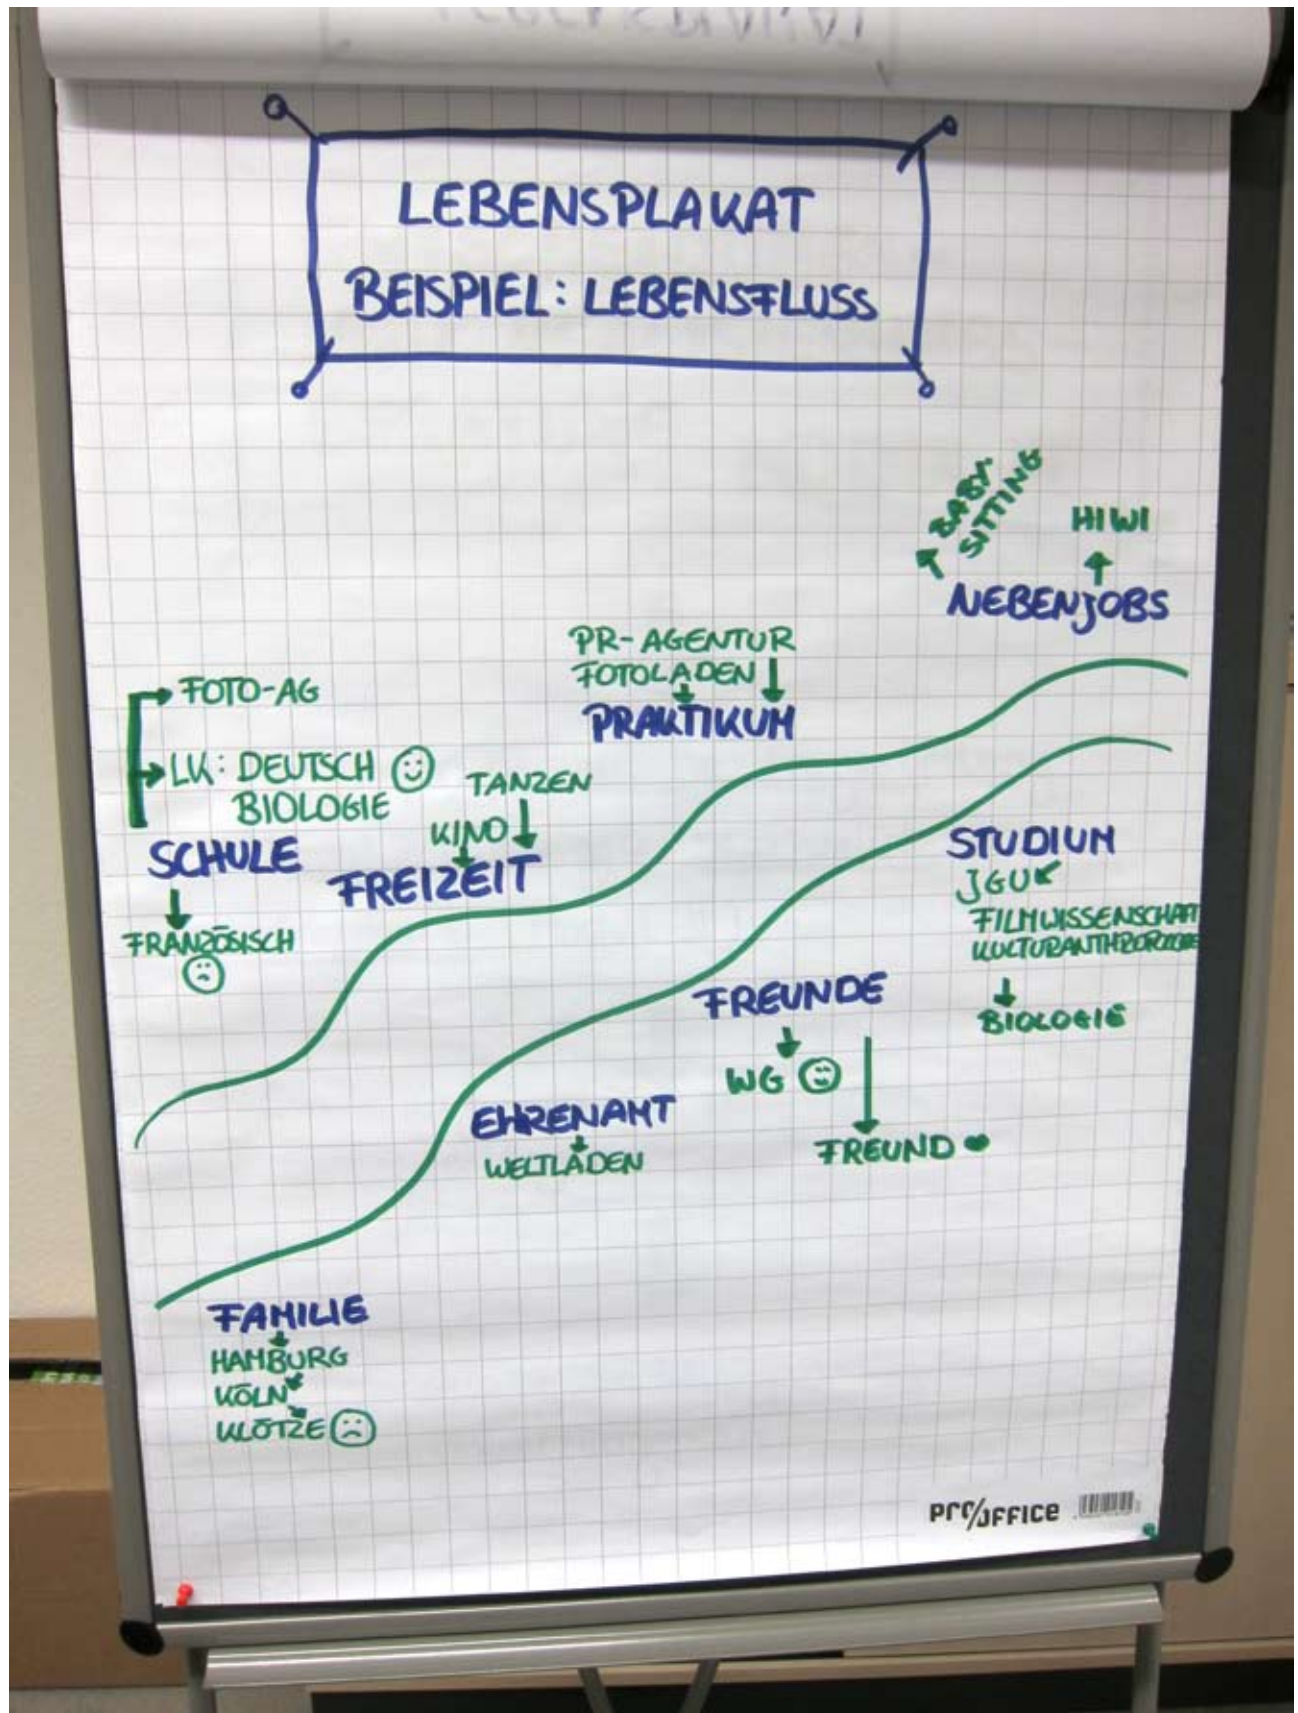 LEBENSPLAKAT
BEISPIEL: LEBENSFLUSS
BABY-
SITTING
HIWI
NEBENJOBS
PR-AGENTUR
FOTOLADEN
PRAKTIKUM
FOTO-AG
LK: DEUTSCH
BIOLOGIE
SCHULE
FRANZÖSISCH
TANZEN
KINO
FREIZEIT
STUDIUM
JGU
FILMWISSENSCHAFT
BIOLOGIE
FREUNDE
WG
FREUND
EHRENAMT
WELTLADEN
FAMILIE
HAMBURG
KÖLN
KLÖTZE
PRO/OFFICE